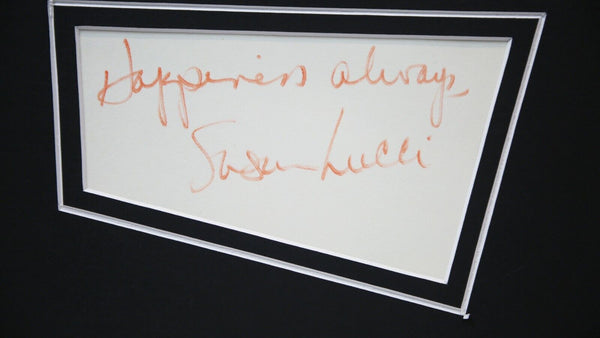 Happiness always,
Susan Lucci